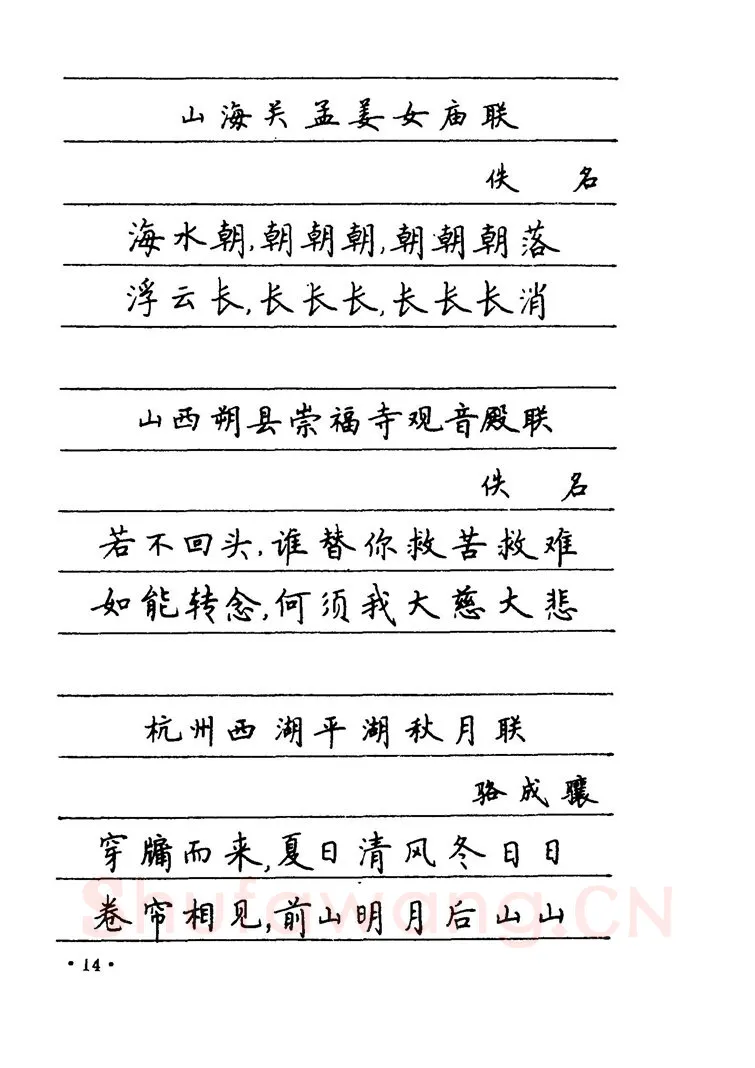 山海关孟姜女庙联
佚 名
海水朝,朝朝朝,朝朝朝落
浮云长,长长长,长长长消
山西朔县崇福寺观音殿联
佚 名
若不回头,谁替你救苦救难
如能转念,何须我大慈大悲
杭州西湖平湖秋月联
骆成骧
穿牗而来,夏日清风冬日日
卷帘相见,前山明月后山山
Shufawang.CN
·14·